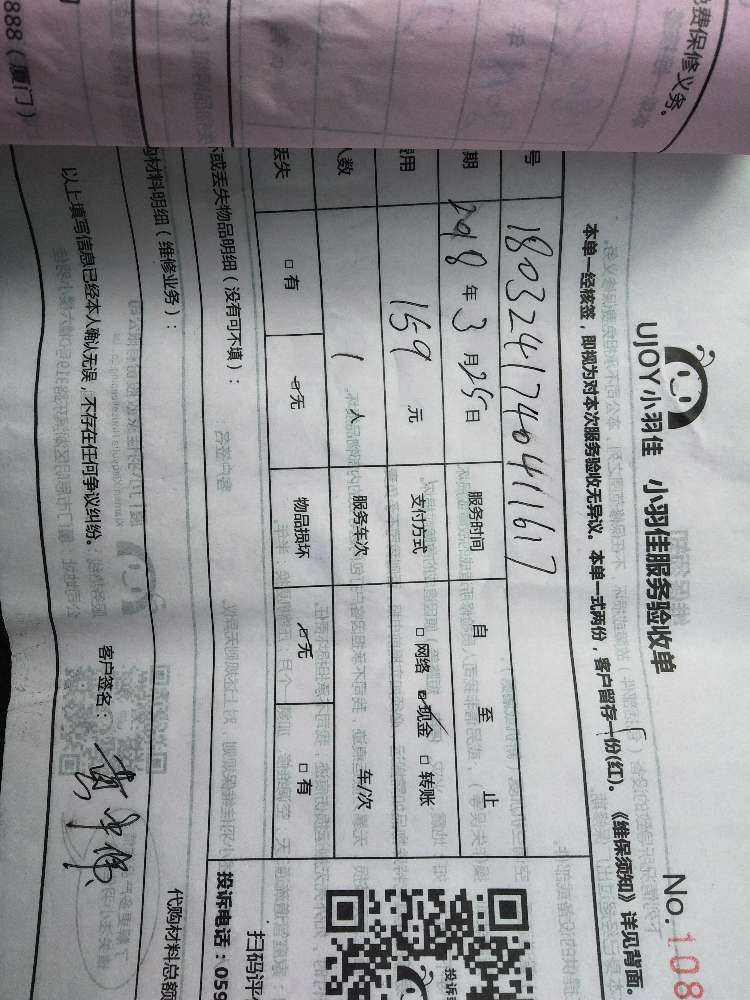 费保修义务。
888（厦门）
UJOY小羽佳 小羽佳服务验收单
No. 108
本单一经核签，即视为对本次服务验收无异议。本单一式两份，客户留存一份(红)。《维保须知》详见背面。
号 180324174041167
期 2018年3月25日 服务时间 自 至 止
用 159元 支付方式 □网络 ☑现金 □转账
人数 1人 服务车次 车/次
丢失 □有 ☑无 物品损坏 ☑无 □有
或丢失物品明细（没有可不填）：
扫码评
投诉电话：059
材料明细（维修业务）：
代购材料总额
以上填写信息已经本人确认无误，不存在任何争议纠纷。 客户签名：